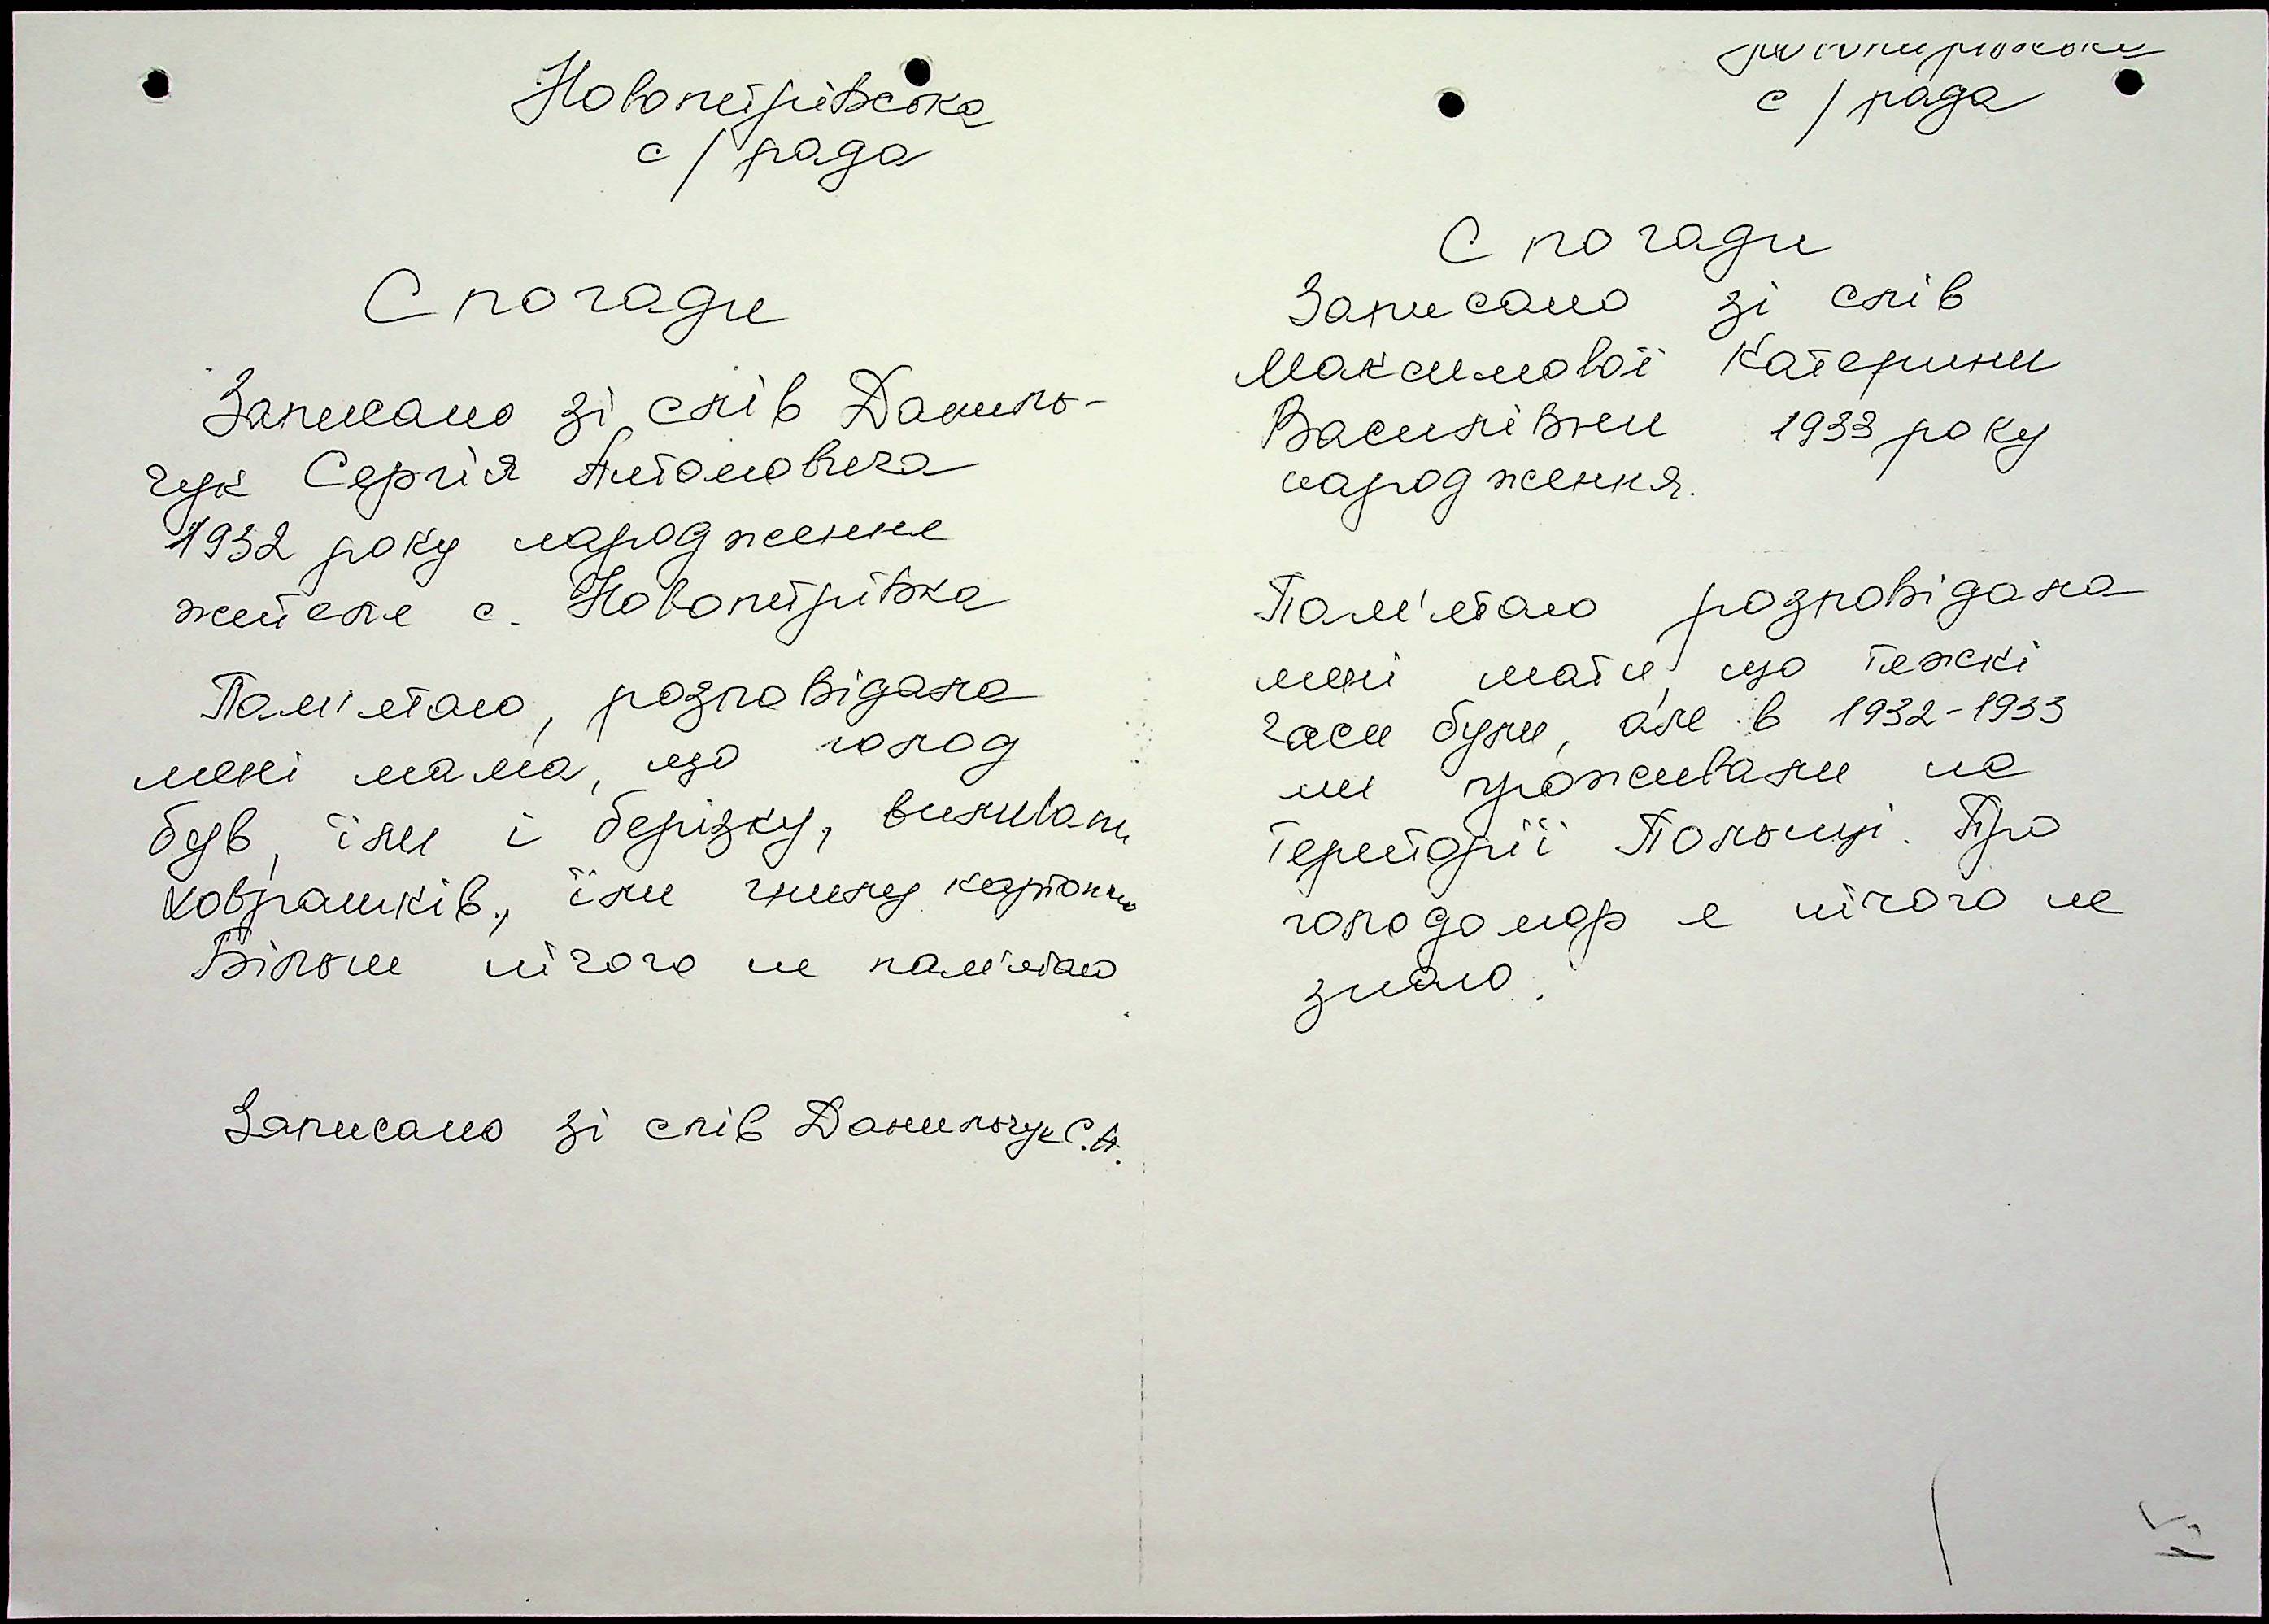 Новопетрівська
с/рада
Спогади
Записано зі слів Даниль-
чук Сергія Антоновича
1932 року народження
жителя с. Новопетрівка
Пам'ятаю, розповідала
мені мама, що голод
був, їли і берізку, виливали
ховрашків, їли гнилу картоплю
Більше нічого не пам'ятаю.
Записано зі слів Данильчук С.А.
с/рада
Спогади
Записано зі слів
Максимової Катерини
Василівни 1933 року
народження.
Пам'ятаю розповідала
мені мати, що тяжкі
часи були, але в 1932-1933
ми проживали на
території Польщі. Про
голодомор я нічого не
знаю.